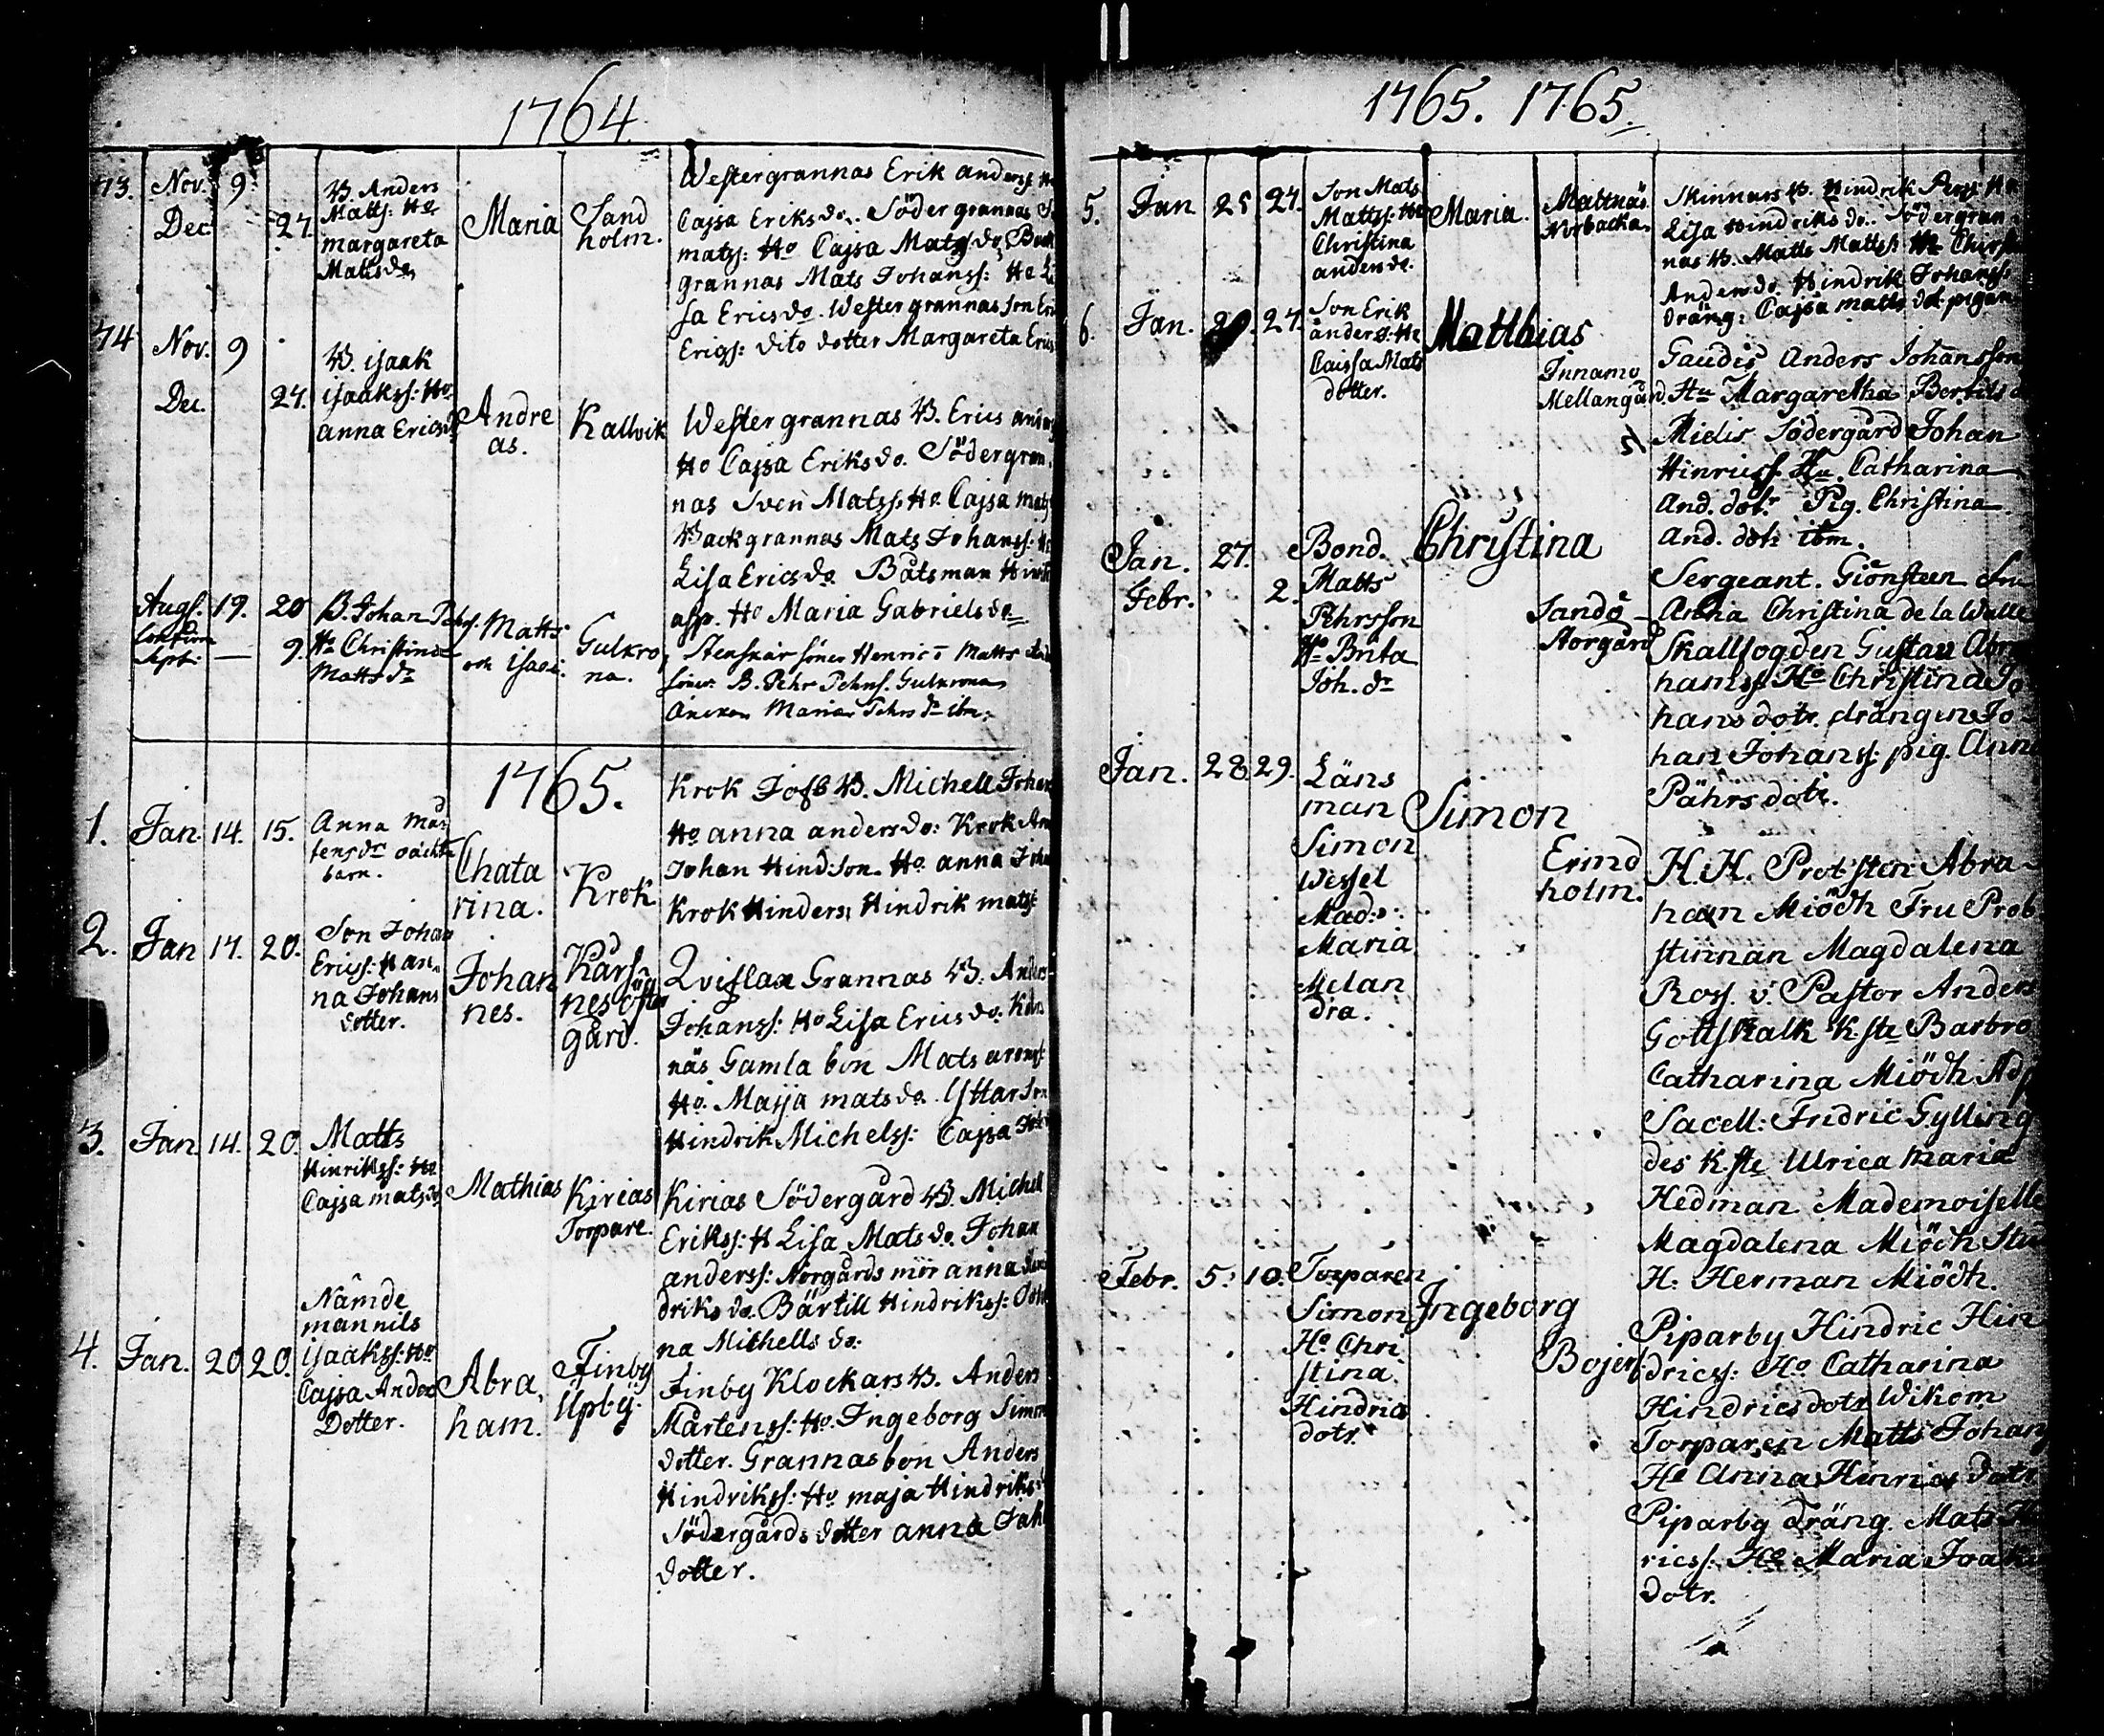 1764.
73. Nov. 9.
Dec. 27.
B. Anders
Matts: Ho
margareta
Matts do
Maria
Sand
holm.
Westergrannas Erik anderss: Ho
Cajsa Eriks do. Södergrannas
matss: Ho Cajsa Mats do, Back
grannas Mats Johanss: Ho Li
sa Erics do. Westergrannas son Eri
Erigs: dito dotter Margareta Erics
74 Nov. 9
Dec. 27.
B. isaak
isaakss: Ho
anna Erics
Andre
as.
Kallvik
Westergrannas B. Erics anders
Ho Cajsa Eriks do. Södergran
nas Sven Matss. Ho. Cajsa mats
Backgrannas Mats Johanss: Ho
Lisa Erics do. Båtsman Hind
ass. Ho Maria Gabriels do
Augs. 19. 20
Sept: — 9.
B. Johan Pehrs.
Ho Christina
Matts dr
Matts
och isaac.
Gulkro
na.
Stenskär söner Henric o Matts
söner. B. Pehr Pehrs. Gulkrona
Änckan Maria Pehrs dr ibm.
1765.
1. Jan. 14. 15.
Anna Mår
tens dr oächta
barn.
Chata
rina.
Krok
Krok Jofs B. Michell Johan
Ho anna anders do: Krok
Johan Hindson. Ho. anna Joha
Krok Hinders, Hindrik mats:
2. Jan 17. 20.
Son Johan
Erics: H an
na Johans
dotter.
Johan
nes.
Kärs
nes öster
gård.
Qvislax Grannas B. Anders
Johanss: Ho Lisa Erics do.
näs Gamla bon Mats aronss:
Ho. Maija mats do. Yttar son
Hindrik Michelss: Cajsa
3. Jan 14. 20.
Matts
Hinrikss: Ho
Cajsa mats do
Mathias
Kirias
Torpare.
Kirias Södergård B. Michel
Erikss: H Lisa Mats do. Johan
anderss: Norgårds mör anna Hen
driks do. Bärtill Hindrikss:
na Michells do:
4. Jan. 20 20.
Nämde
man nils
isaakss: Ho
Cajsa Anders
Dotter.
Abra,
ham.
Finby
Upby.
Finby Klockars B. Anders
Mårtenss: Ho. Ingeborg Simons
dotter. Grannas bon Anders
Hindrikss: Ho maja Hindriks
Södergårds dotter anna Joh
dotter.
1765. 1765.
5. Jan 25 27.
Son Mats
Mattss: Ho
Christina
anders do.
Maria.
Mattnäs
Norbacka.
Skinnars B. Hindrik Perss: Ho
Lisa Hindriks do. Södergran
nas B. Matts Mattss Ho Chirsti
Anders do Hindrik Johanss:
dräng: Cajsa matts dot pigan
6. Jan. 27.
Son Erik
anderss: Ho
Caissa Mats
dotter.
Matthias
Innamo
Mellangård.
Gaudis Anders Johansson
Hu Margaretha Bertils d
Mielis Södergård Johan
Hinricss. Hu Catharina
And. dotr Pig. Christina
And. dotr ibm.
Jan. 27.
Febr. 2.
Bond.
Matts
Pehrsson
Ho Brita
Joh. dr
Christina
Sandö
Norgård
Sergeant. Giönsteen Fru
Anna Christina de la Walle
Skallfogden Gustav Abra
hamss Ho Christina Jo
hans dotr. drängen Jo
han Johanss: pig. Anna
Pährs dotr.
Jan. 28. 29.
Läns
man
Simon
Wessel
Mad:
Maria
Melan
dra.
Simon
Ermd
holm.
H. H. Probsten Abra
ham Miödh Fru Prob
stinnan Magdalena
Ross. v. Pastor Anders
Gottskalk K. ste Barbro
Catharina Miödh Adj
Sacell: Fridric Gylling
des K ste Ulrica Maria
Hedman Mademoiselle
Magdalena Miödh Stu
H: Herman Miödh.
Febr. 5. 10.
Torparen
Simon
Ho Chri
stina
Hindrics
dotr.
Ingeborg
Bojers
Piparby Hindric Hin
dricss: Ho Catharina
Hindrics dotr Wikom
Torparen Matts Johans
Ho Anna Henrics dotr
Piparby Dräng. Mats H
ricss: Ho Maria Joak
dotr.